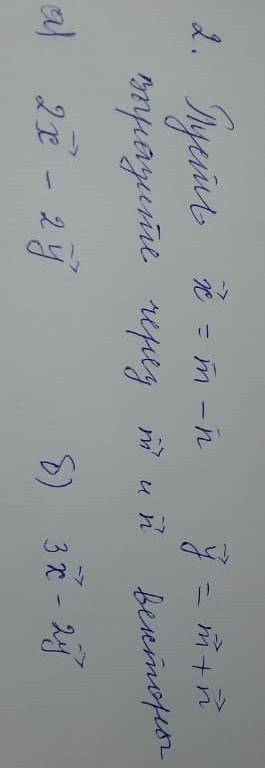 2. Пусть x⃗ = m⃗ − n⃗  y⃗ = m⃗ + n⃗
выразите через m⃗ и n⃗ векторы
а) 2x⃗ − 2y⃗  б) 3x⃗ − 2y⃗